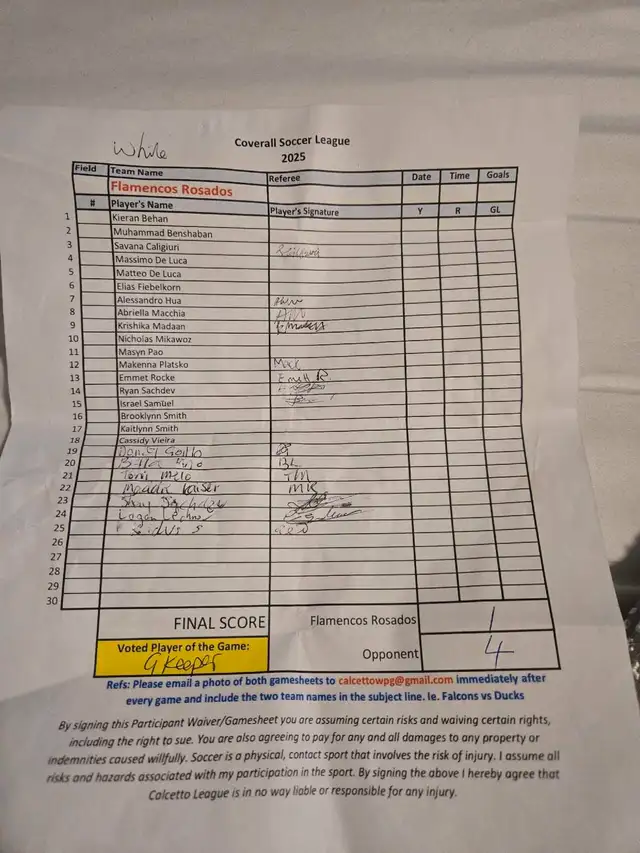 White
Coverall Soccer League
2025
Field Team Name Referee Date Time Goals
Flamencos Rosados
# Player's Name Player's Signature Y R GL
1 Kieran Behan
2 Muhammad Benshaban
3 Savana Caligiuri
4 Massimo De Luca
5 Matteo De Luca
6 Elias Fiebelkorn
7 Alessandro Hua
8 Abriella Macchia
9 Krishika Madaan
10 Nicholas Mikawoz
11 Masyn Pao
12 Makenna Platsko Mack
13 Emmet Rocke Emmett R
14 Ryan Sachdev
15 Israel Samuel
16 Brooklynn Smith
17 Kaitlynn Smith
18 Cassidy Vieira
19 Daniel
20 BL
21 Melo TM
22 Maddix Kaiser MK
23
24 Logan
25
26
27
28
29
30
FINAL SCORE Flamencos Rosados 1
Voted Player of the Game: Opponent 4
G Keeper
Refs: Please email a photo of both gamesheets to calcettowpg@gmail.com immediately after
every game and include the two team names in the subject line. Ie. Falcons vs Ducks
By signing this Participant Waiver/Gamesheet you are assuming certain risks and waiving certain rights,
including the right to sue. You are also agreeing to pay for any and all damages to any property or
indemnities caused willfully. Soccer is a physical, contact sport that involves the risk of injury. I assume all
risks and hazards associated with my participation in the sport. By signing the above I hereby agree that
Calcetto League is in no way liable or responsible for any injury.